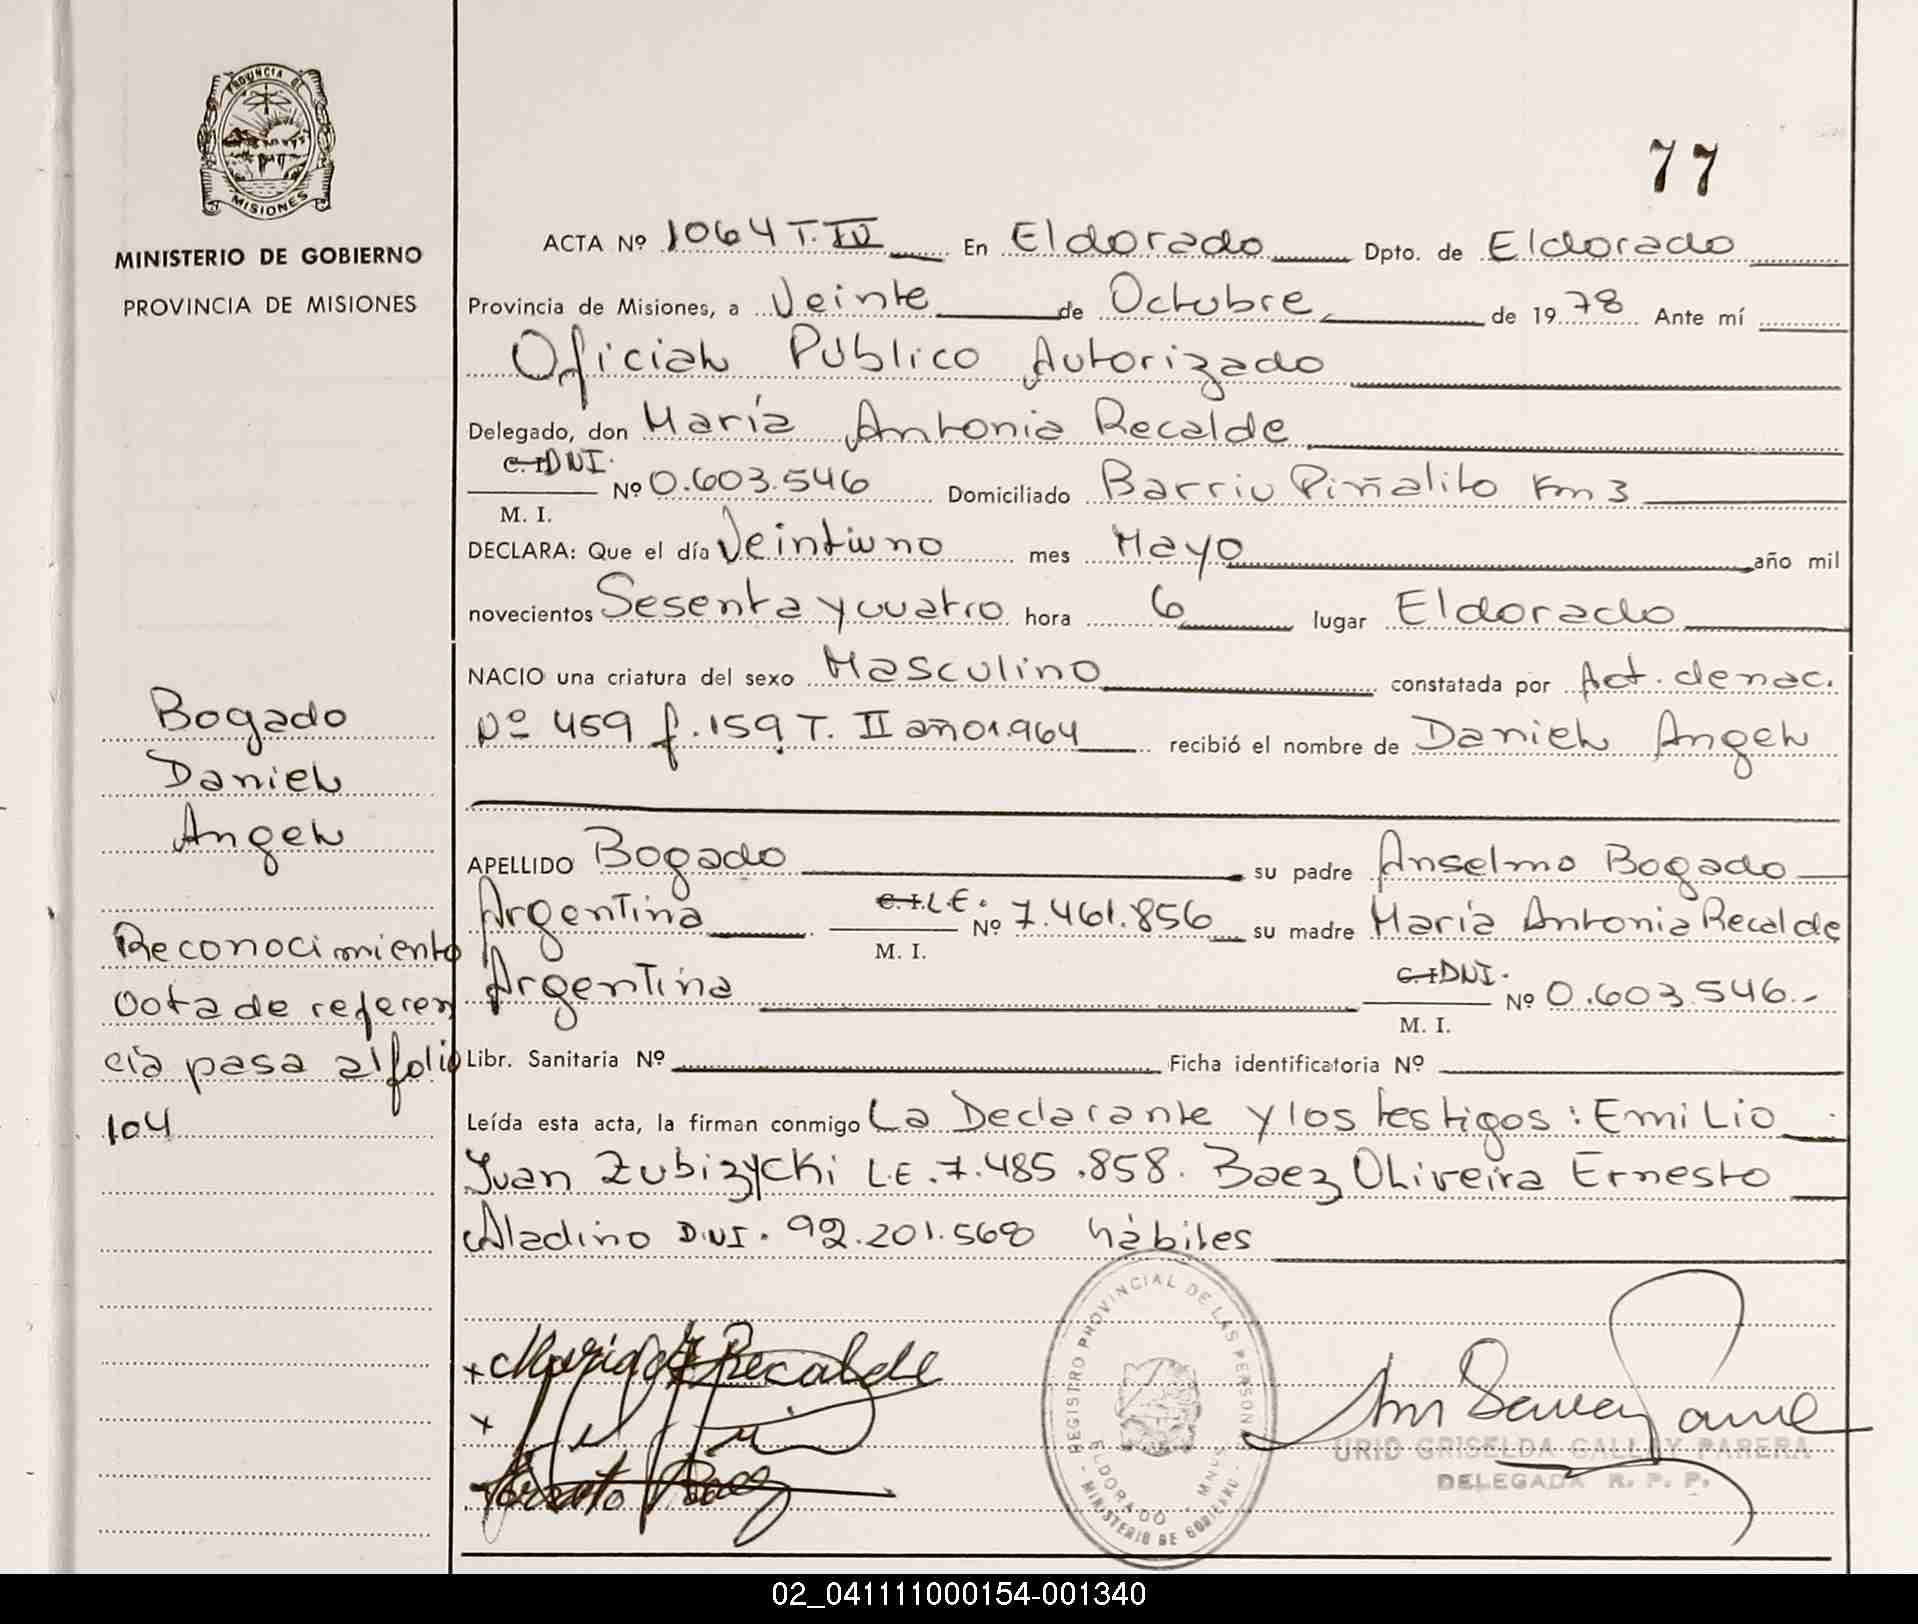 PROVINCIA DE
MISIONES
MINISTERIO DE GOBIERNO
PROVINCIA DE MISIONES
77
ACTA Nº 1064 T. IV En Eldorado Dpto. de Eldorado
Provincia de Misiones, a Veinte de Octubre de 1978 Ante mí
Oficial Publico Autorizado
Delegado, don María Antonia Recalde
C.I DNI.
M. I.
Nº 0.603.546 Domiciliado Barrio Piñalito Km 3
DECLARA: Que el día Veintiuno mes Mayo año mil
novecientos Sesenta y cuatro hora 6 lugar Eldorado
NACIO una criatura del sexo Masculino constatada por Act. de nac.
Nº 459 f. 159 T. II año 1.964 recibió el nombre de Daniel Angel
Bogado
Daniel
Angel
APELLIDO Bogado su padre Anselmo Bogado
Argentina C.I L.E. M. I. Nº 7.461.856 su madre María Antonia Recalde
Argentina C.I DNI. M. I. Nº 0.603.546.-
Reconocimiento
oota de referen
cia pasa al folio
104
Libr. Sanitaria Nº Ficha identificatoria Nº
Leída esta acta, la firman conmigo La Declarante y los testigos: Emilio
Juan Zubizycki L.E. 7.485.858. Baez Oliveira Ernesto
Aladino D.N.I. 92.201.568 hábiles
María A Recalde
Ernesto Baez
REGISTRO PROVINCIAL DE LAS PERSONAS
ELDORADO MNES
- MINISTERIO DE GOBIERNO -
URID GRISELDA GALLAY PARERA
DELEGADA R. P. P.
02_041111000154-001340